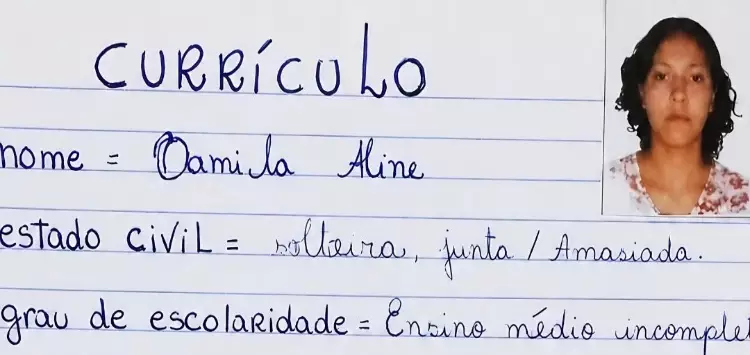 CURRÍCULO
nome = Damila Aline
estado civil = solteira, junta / Amasiada.
grau de escolaridade = Ensino médio incomple